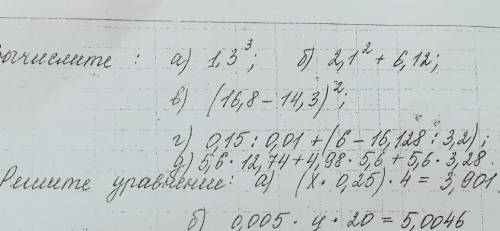 вычислите : а) 1,3³; б) 2,1² + 6,12;
в) (16,8 – 14,3)²;
г) 0,15 : 0,01 + (6 – 16,128 : 3,2);
д) 5,6 · 12,74 + 4,98 · 5,6 + 5,6 · 3,28.
Решите уравнение: а) (х · 0,25) · 4 = 3,901
б) 0,005 · у · 20 = 5,0046